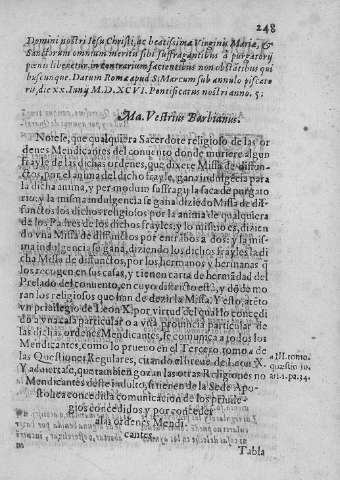 248
Domini nostri Iesu Christi, ac beatissimæ Virginis Mariæ, &
Sanctorum omnium meritis sibi suffragantibus à purgatorij
pœnis liberetur, in contrarium facientibus non obstātibus qui
buscunque. Datum Romæ apud S. Marcum sub annulo piscato
ris, die xx. Iunij M.D.XCVI. Pontificatus nostri anno. 5.
Ma. Vestrius Barbianus.
Notese, que qualquiera Sacerdote religioso de las or
denes Mendicantes del conuento donde muriere algun
frayle de las dichas ordenes, que dixere Missa de difun-
ctos, por el anima del dicho frayle, gana indulgēcia para
la dicha anima, y per modum suffragij la saca de purgato
rio: y la misma indulgencia se gana diziēdo Missa de dif-
functos los dichos religiosos por la anima de qualquiera
de los Padres de los dichos frayles: y lo mismo es, diziēn
do vna Missa de difunctos por entrābos a dos: y la mis-
ma indulgencia se gana, diziendo los dichos frayles la di
cha Missa de difunctos, por los hermanos y hermanas q̄
los recogen en sus casas, y tienen carta de hermādad del
Prelado del conuento, en cuyo districto estā, y dōde mo
ran los religiosos que han de dezir la Missa. Y esto, atēto
vn priuilegio de Leon X. por virtud del qual lo concedi
do a vna casa particular o a vna prouincia particular de
las dichas ordenes Mendicantes, se comunica a todos los
Mendicantes, como lo prueuo en el Tercero tomo a de
las Questiones Regulares, citando el breue de Leon X.
Y aduiertase, que tambien gozan las otras Religiones no
Mendicantes deste indulto, si tienen de la Sede Apo-
stolica concedida comunicacion de los priuile-
gios concedidos y por conceder
a las ordenes Mendi-
cantes.
a III. tomo.
quæstio 10.
art. 1. pa. 34.
Tabla